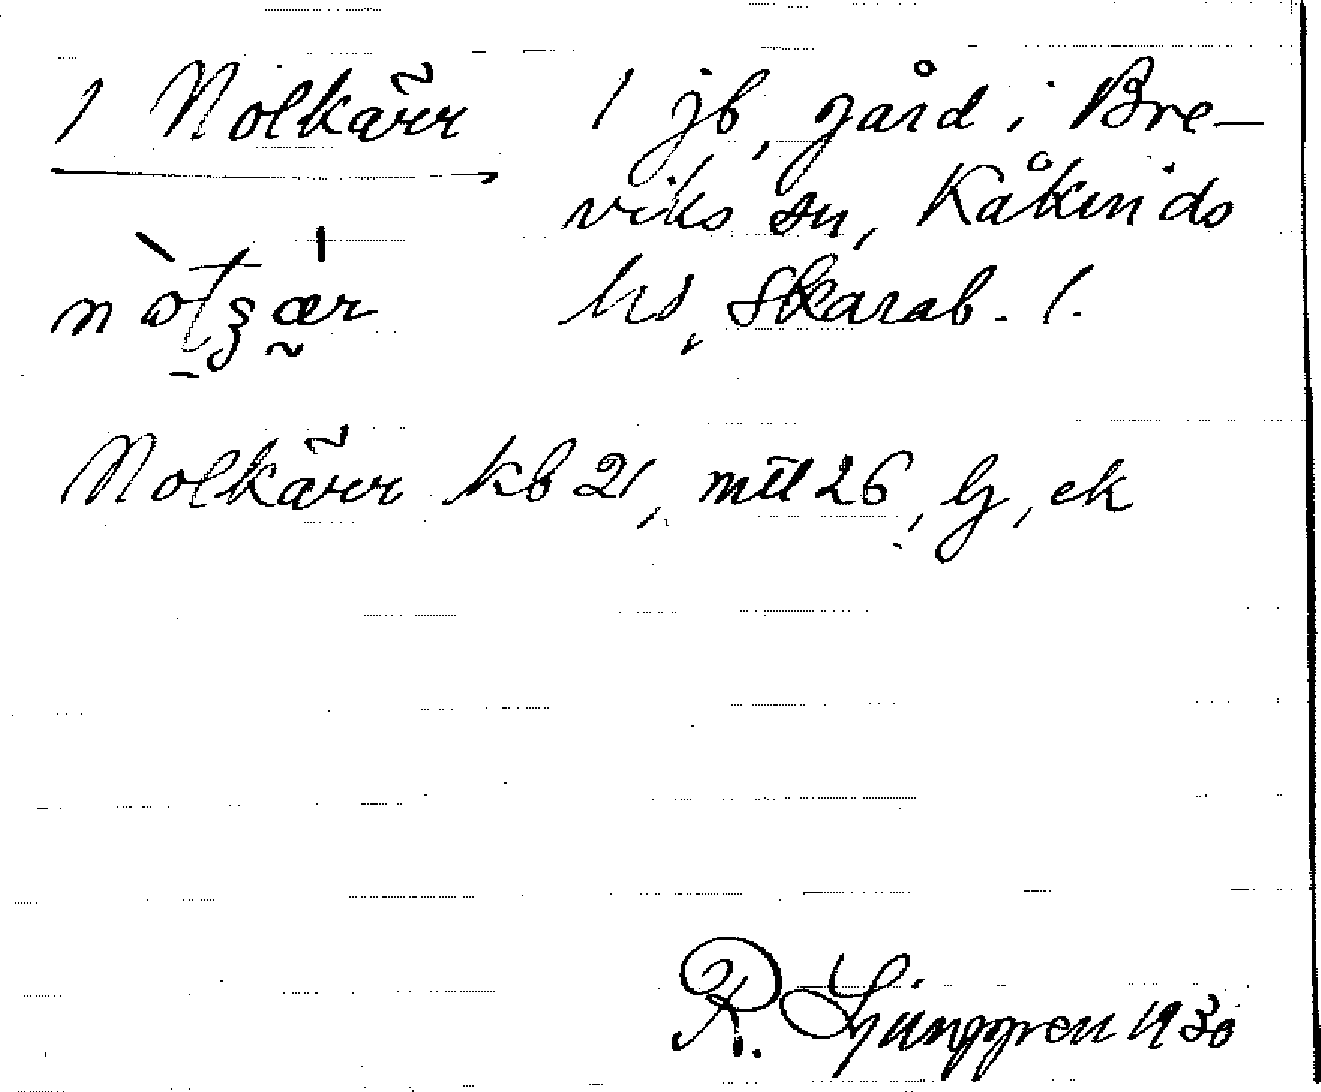 1 Nolkärr 1 jb, gård i Bre-
viks sn, Kåkinds
hd, Skarab. l.
Nolkärr kb 21, mtl 26, lj, ek
R. Ljunggren 1930